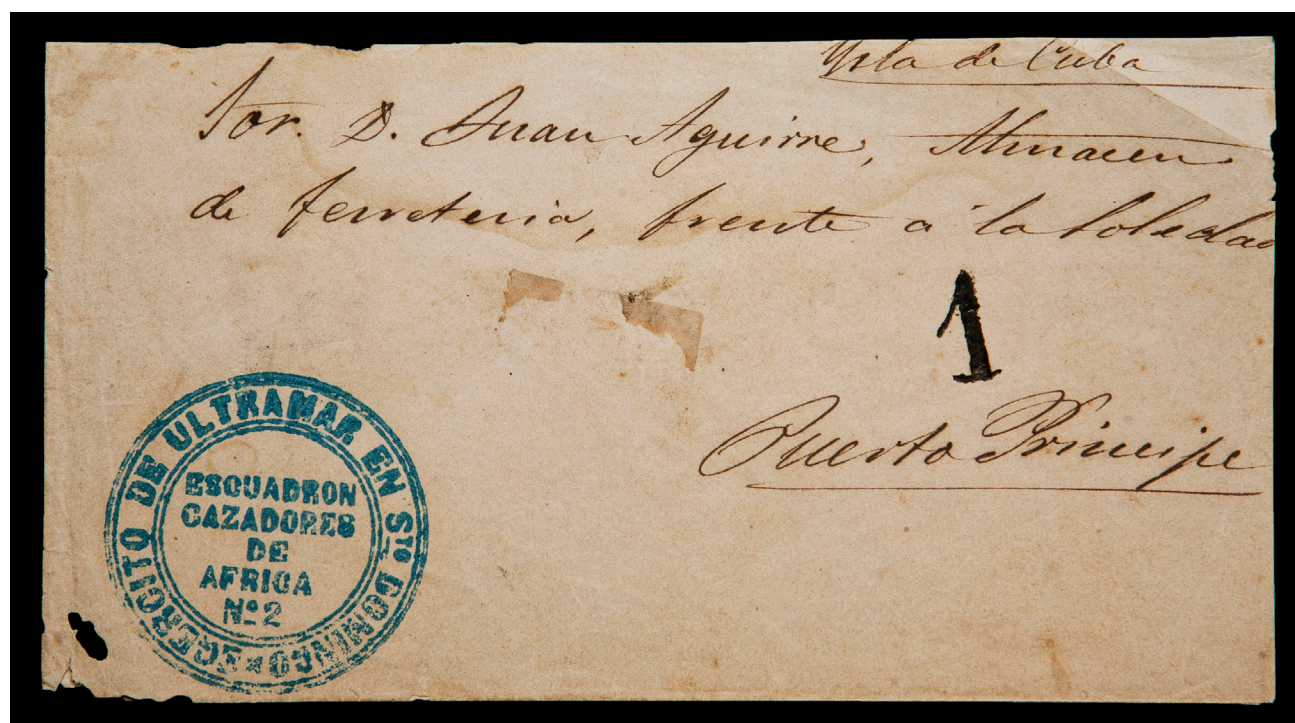 Ysla de Cuba
Sor. D. Juan Aguirre, Almacen
de ferreteria, frente a la Soledad
1
Puerto Principe
EGERCITO DE ULTRAMAR EN STO DOMINGO
ESCUADRON
CAZADORES
DE
AFRICA
Nº 2